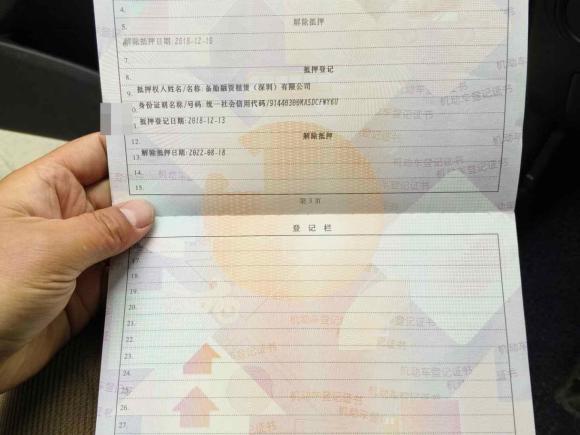 4.
解除抵押
5.
解除抵押日期:2018-12-10
7.
8. 抵押登记
9. 抵押权人姓名/名称:备胎融资租赁(深圳)有限公司
0. 身份证明名称/号码:统一社会信用代码/91440300MA5DCFWY6U
1. 抵押登记日期:2018-12-13
12. 解除抵押
13. 解除抵押日期:2022-08-18
14.
15.
第3页
登 记 栏
17.
18.
19.
20.
21.
22.
23.
24.
25.
26.
27.
机动车登记证书
机动车登记证书
机动车登记证书
机动车登记证书
机动车登记证书